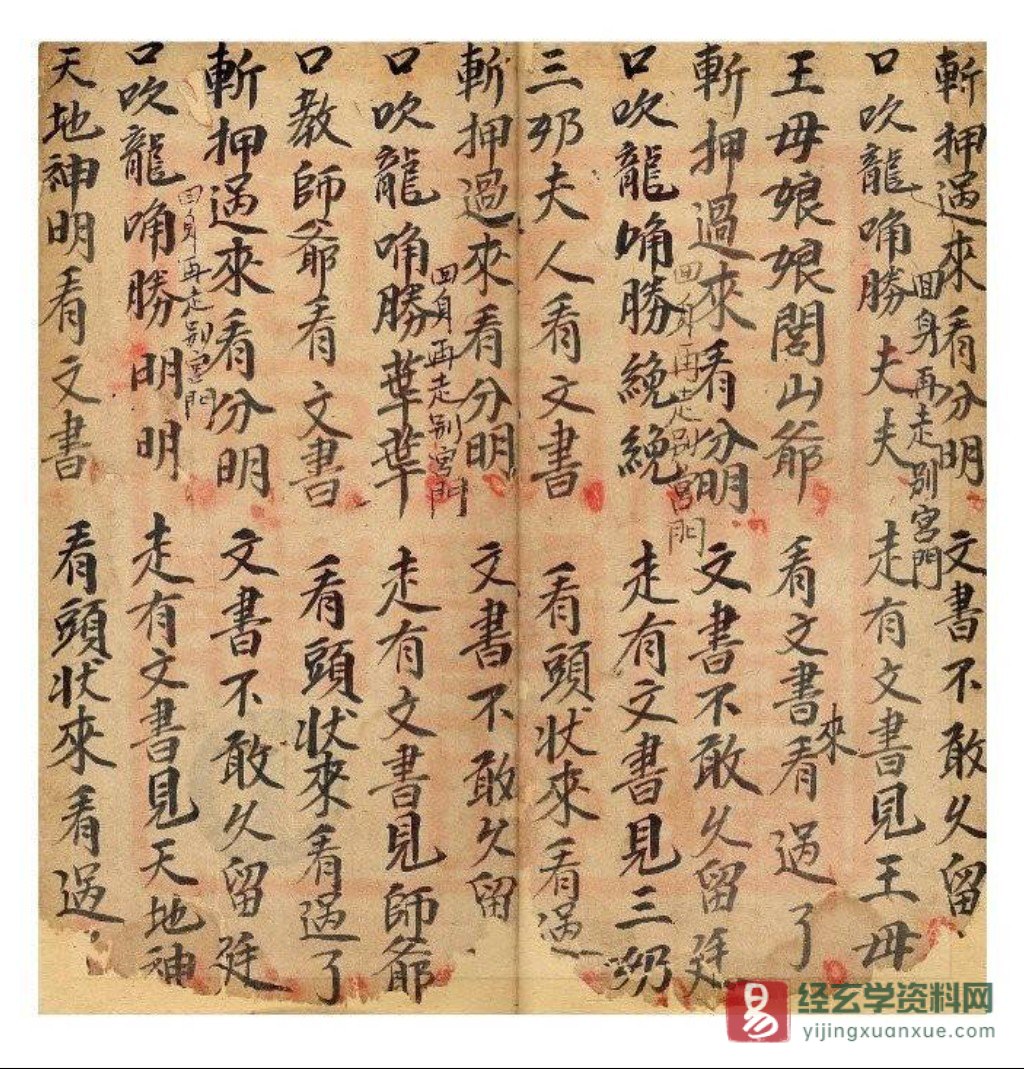 斬押過來看分明 文書不敢久留
回身再走別宮門
口吹龍角勝夫夫 走有文書見王母
王母娘娘閭山爺 看文書來看過了
斬押過來看分明 文書不敢久留廷
回身再走別宮門
口吹龍角勝絻絻 走有文書見三奶
三奶夫人看文書 看頭狀來看過
斬押過來看分明 文書不敢久留
回身再走別宮門
口吹龍角勝葉葉 走有文書見師爺
口教師爺看文書 看頭狀來看過了
斬押過來看分明 文書不敢久留廷
回身再走別宮門
口吹龍角勝明明 走有文書見天地神
天地神明看文書 看頭狀來看過
易
经玄学资料网
yijingxuanxue.com